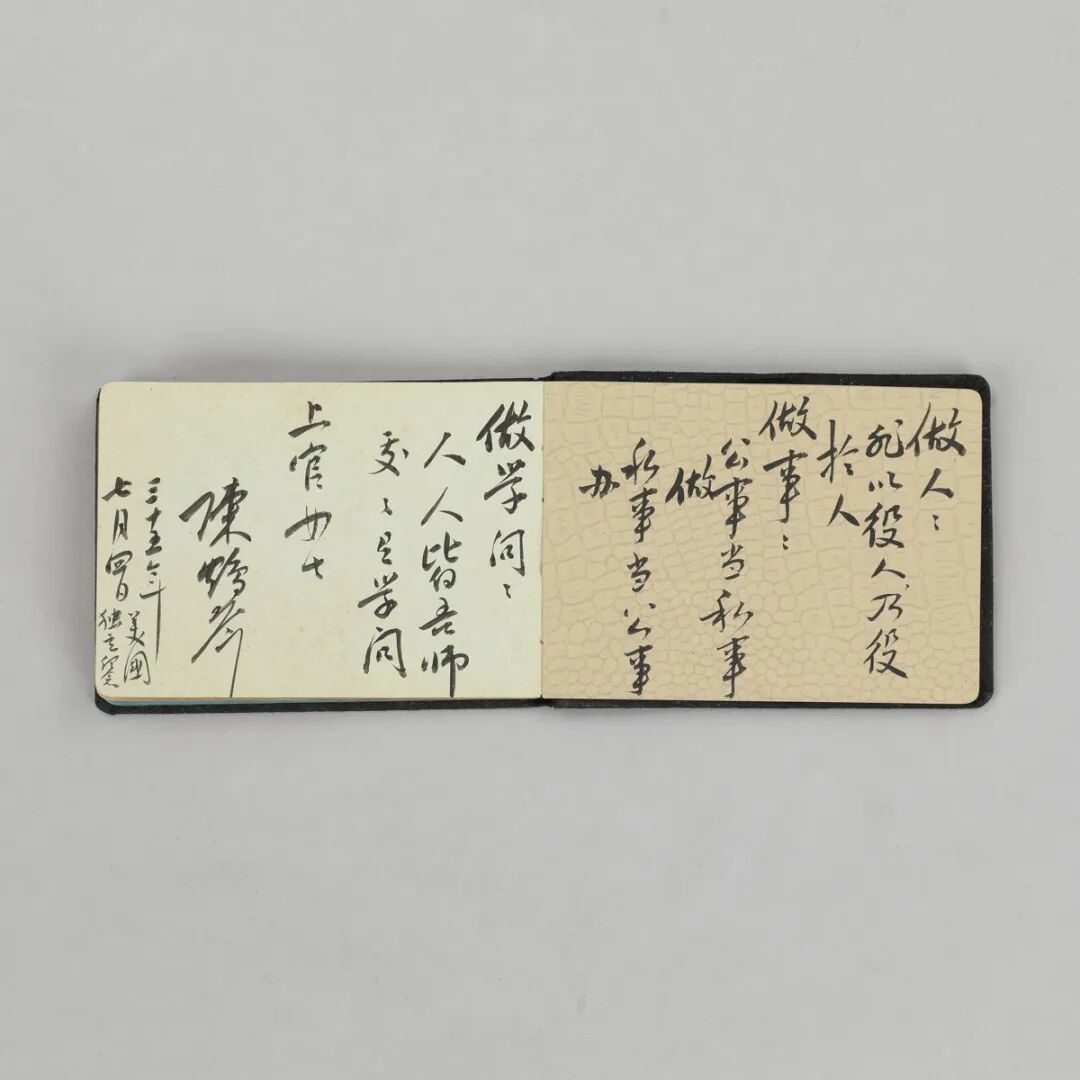 做人:
非以役人,乃役
於人
做事:
公事当私事
做
私事当公事
办
做学问:
人人皆吾师
处々是学问
上官女士
陳鶴琴
三十五年
七月四日
美國
独立